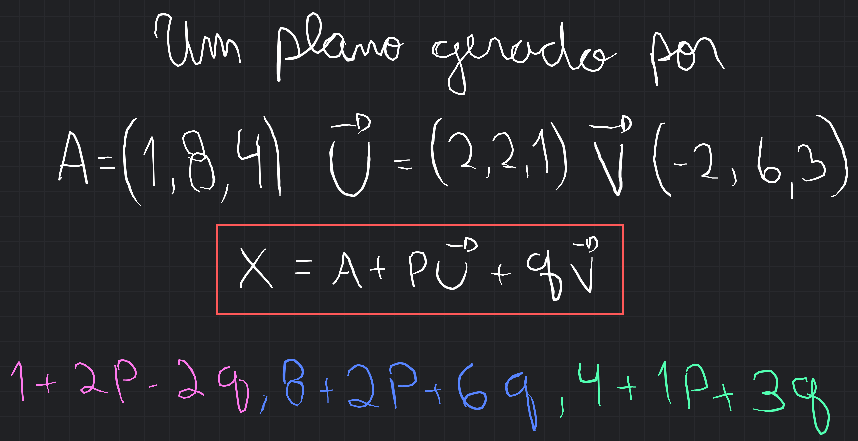 Um plano gerado por
A=(1,8,4) U⃗ = (2,2,1) V⃗ (-2,6,3)
X = A + PU⃗ + qV⃗
1+2P-2q, 8+2P+6q, 4+1P+3q